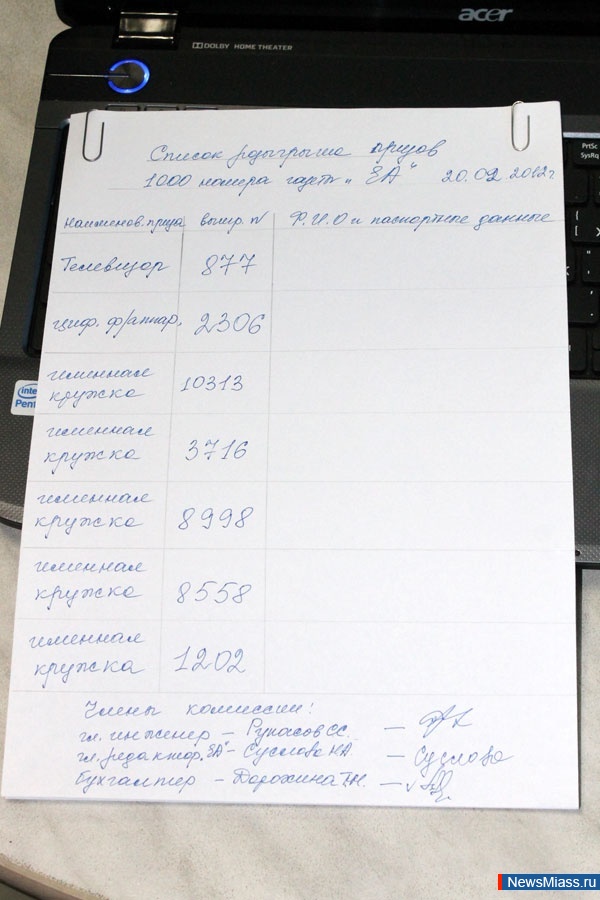 acer
DOLBY HOME THEATER
PrtSc
SysRq
Список розыгрыша призов
1000 номера газеты „ЕА“ 20.02 2012г.
Наименов. приза выигр. N Ф.И.О и паспортные данные
Телевизор 877
циф. ф/аппар. 2306
именная
кружка 10313
именная
кружка 3716
именная
кружка 8998
именная
кружка 8558
именная
кружка 1202
Члены комиссии:
гл. инженер – Рупасов СС. –
гл. редактор „ЕА“ – Суслова НА – Суслова
бухгалтер – Дорожина Т.Н. –
intel
Pent
NewsMiass.ru